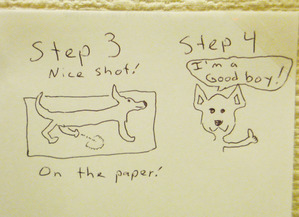 Step 3
Nice shot!
On the paper!
Step 4
I'm a
Good boy!